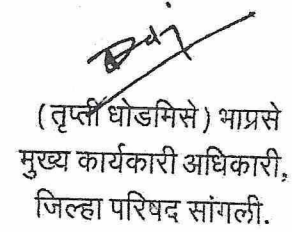 ( तृप्ती धोडमिसे ) भाप्रसे
मुख्य कार्यकारी अधिकारी,
जिल्हा परिषद सांगली.